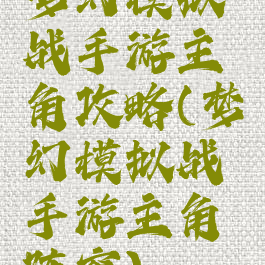 梦幻模拟
战手游主
角攻略(梦
幻模拟战
手游主角
阵容)